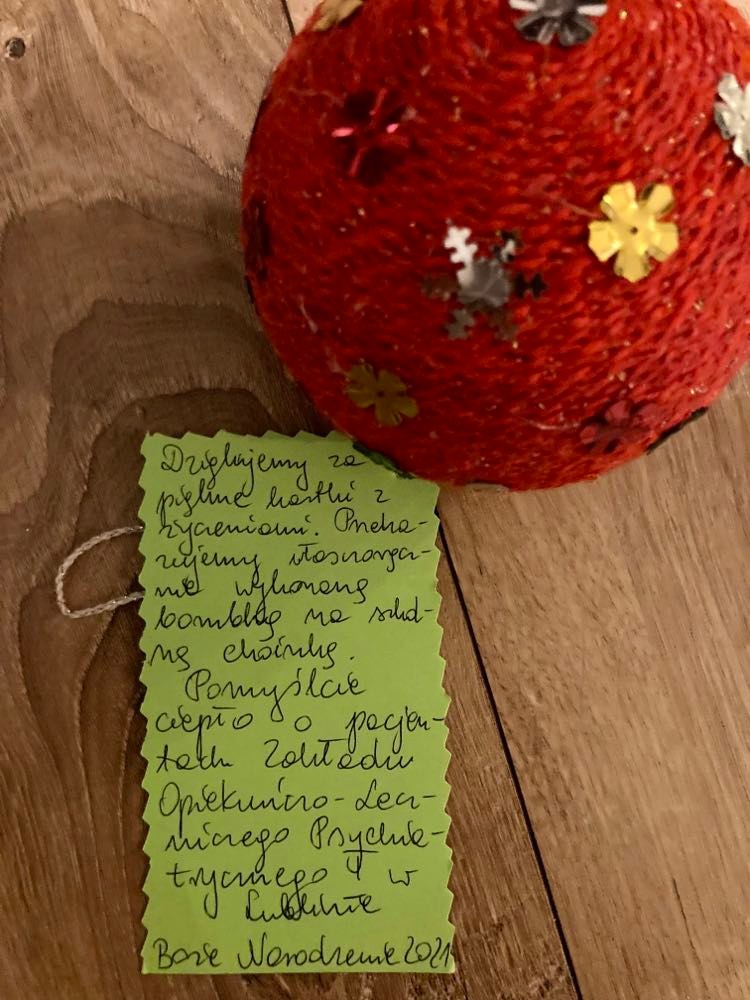 Dziękujemy za
piękne kartki z
życzeniami. Przeka-
zujemy własnoręcz-
nie wykonaną
bombkę na szkol-
ną choinkę.
Pomyślcie
ciepło o pacjen-
tach Zakładu
Opiekuńczo-Lecz-
niczego Psychia-
trycznego w
Lublinie
Boże Narodzenie 2021